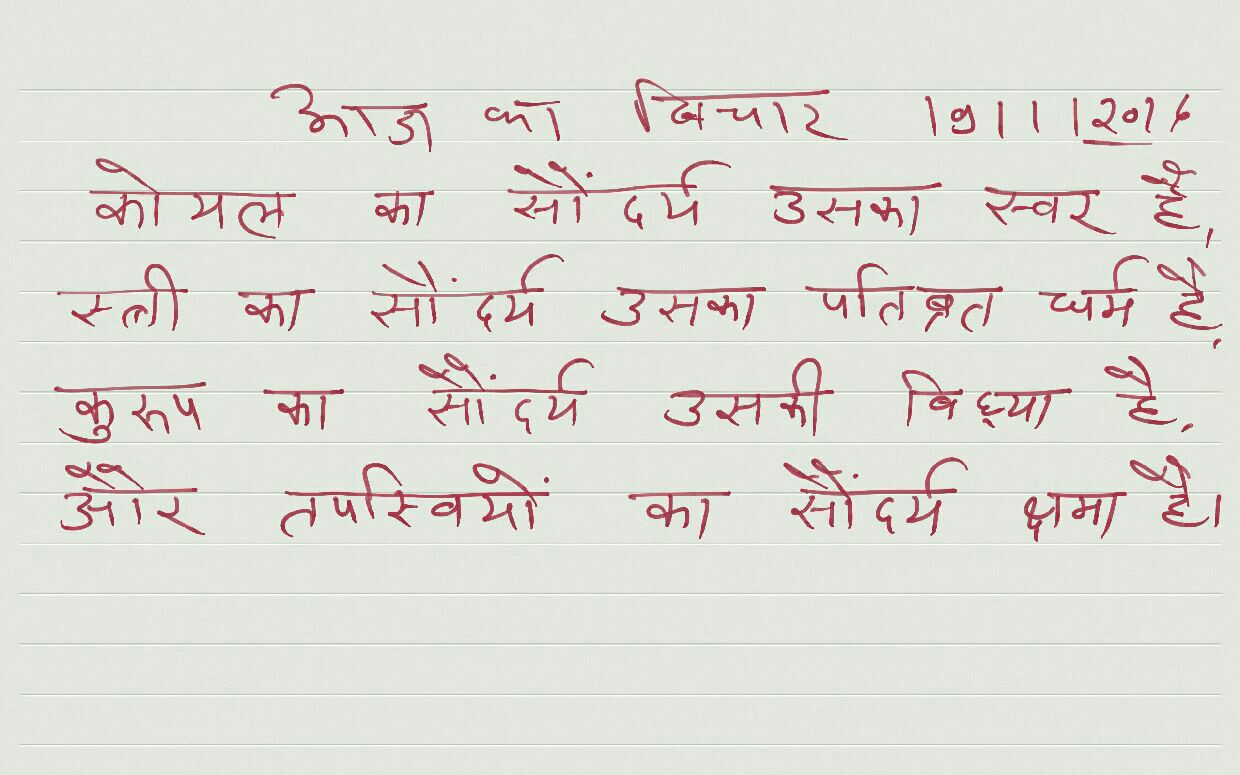 आज का बिचार 19|11|2016
कोयल का सौंदर्य उसका स्वर है,
स्त्री का सौंदर्य उसका पतिब्रत धर्म है,
कुरूप का सौंदर्य उसकी विध्या है,
और तपस्वियों का सौंदर्य क्षमा है।